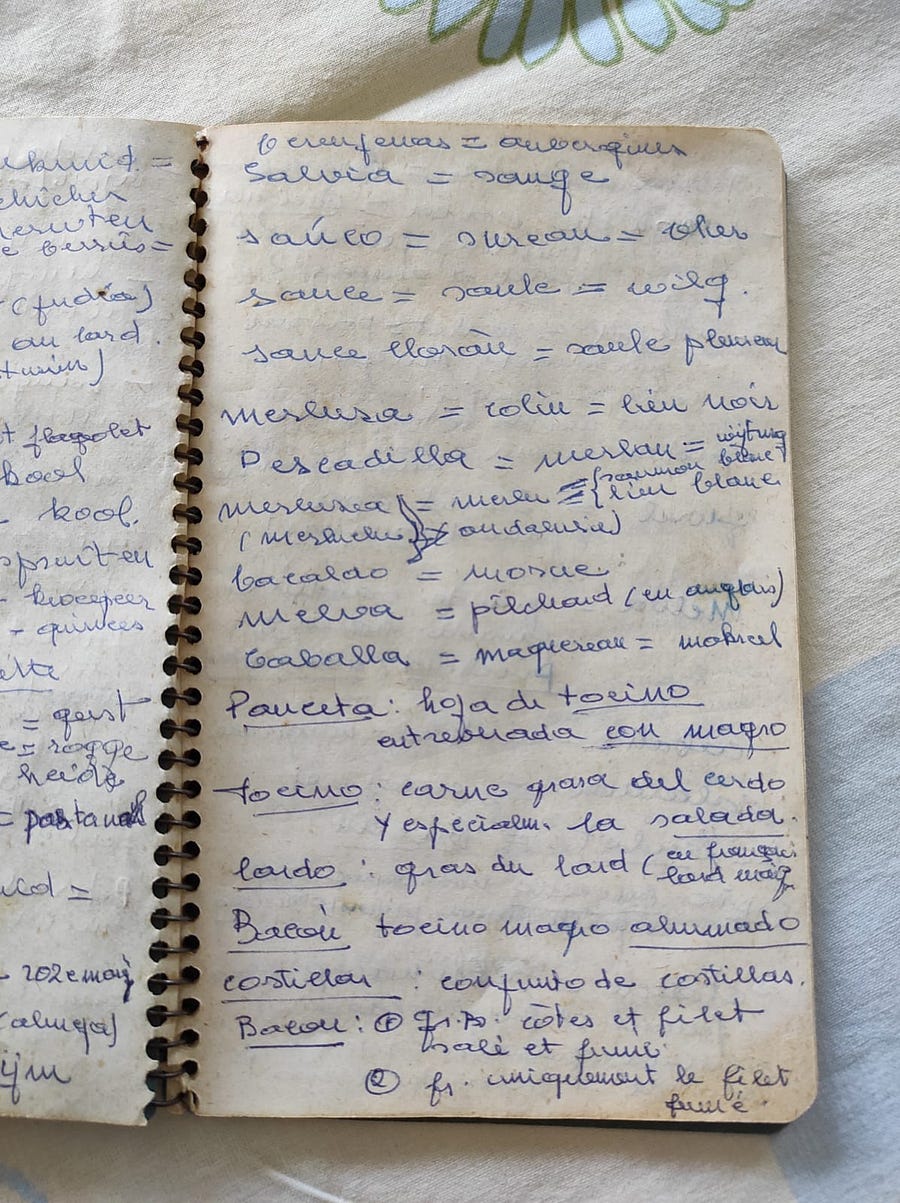 kruid =
chiches
erwten
e bessies =
(judia)
au lard.
t flageolet
kool
- kool.
spruiten
- quinces
ette
= gerst
= rogge
heide
=
- rozemarij
(aluga)
ijm
berenjenas = aubergines
Salvia = sauge
saúco = sureau = vlier
sauce = saule = wilg.
sauce llorón = saule pleureur
merluza = colin = lieu noir
Pescadilla = merlan = wijting
merluza = merlu = { saumon blanc
lieu blanc
( andalusia)
bacaldo = morue.
melva = pilchard (en anglais)
Caballa = maquereau = makreel
Panceta : hoja de tocino
entreverada con magro
tocino : carne grasa del cerdo
y especialm. la salada.
lardo : gras du lard (en français
lard maig
Bacón tocino magro ahumado
costillar : conjunto de costillas.
Bacon : ① côtes et filet
salé et fumé.
② fr. uniquement le filet
fumé.